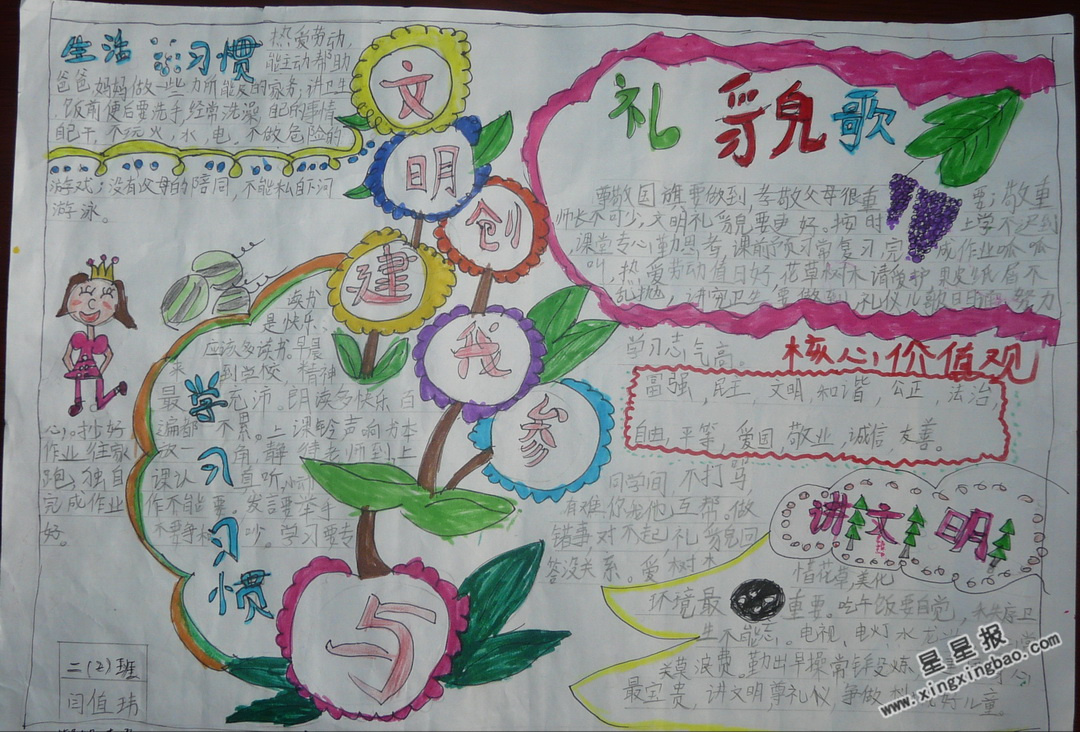 生活 习惯
热爱劳动,
能主动帮助
爸爸,妈妈做一些力所能及的家务;讲卫生
饭前便后要洗手,经常洗澡,自己的事情
自己干,不玩火,水,电,不做危险的
游戏;没有父母的陪同,不能私自下河
游泳。
文
明
创
建
我
参
与
礼貌歌
尊敬国旗要做到,孝敬父母很重要;敬重
师长不可少,文明礼貌要更好。按时上学不迟到
,课堂专心勤思考,课前预习常复习,完成作业呱呱
叫,热爱劳动值日好,花草树木请爱护,果皮纸屑不
乱抛,讲究卫生
学习志气高。
核心价值观
富强,民主,文明,和谐,公正,法治,
自由,平等,爱国,敬业,诚信,友善。
读书
是快乐,
应该多读书。早晨
来到学校,精神
最充沛。朗读多快乐,百
遍都不累。上课铃声响,书本
静待老师到,上
学习习惯
完成作业
好。
发言要举手
学习要专
同学间,不打骂
有难,你我他,互帮。做
错事,对不起,礼貌问
答没关系。爱树木
讲文明
惜花草,美化
环境最重要。吃午饭要自觉,
生不能忘。电视,电灯,水龙
关莫浪费。勤出早操常锻炼
最宝贵,讲文明尊礼仪,争做
好儿童。
二(2)班
闫值玮
星星报
www.xingxingbao.com